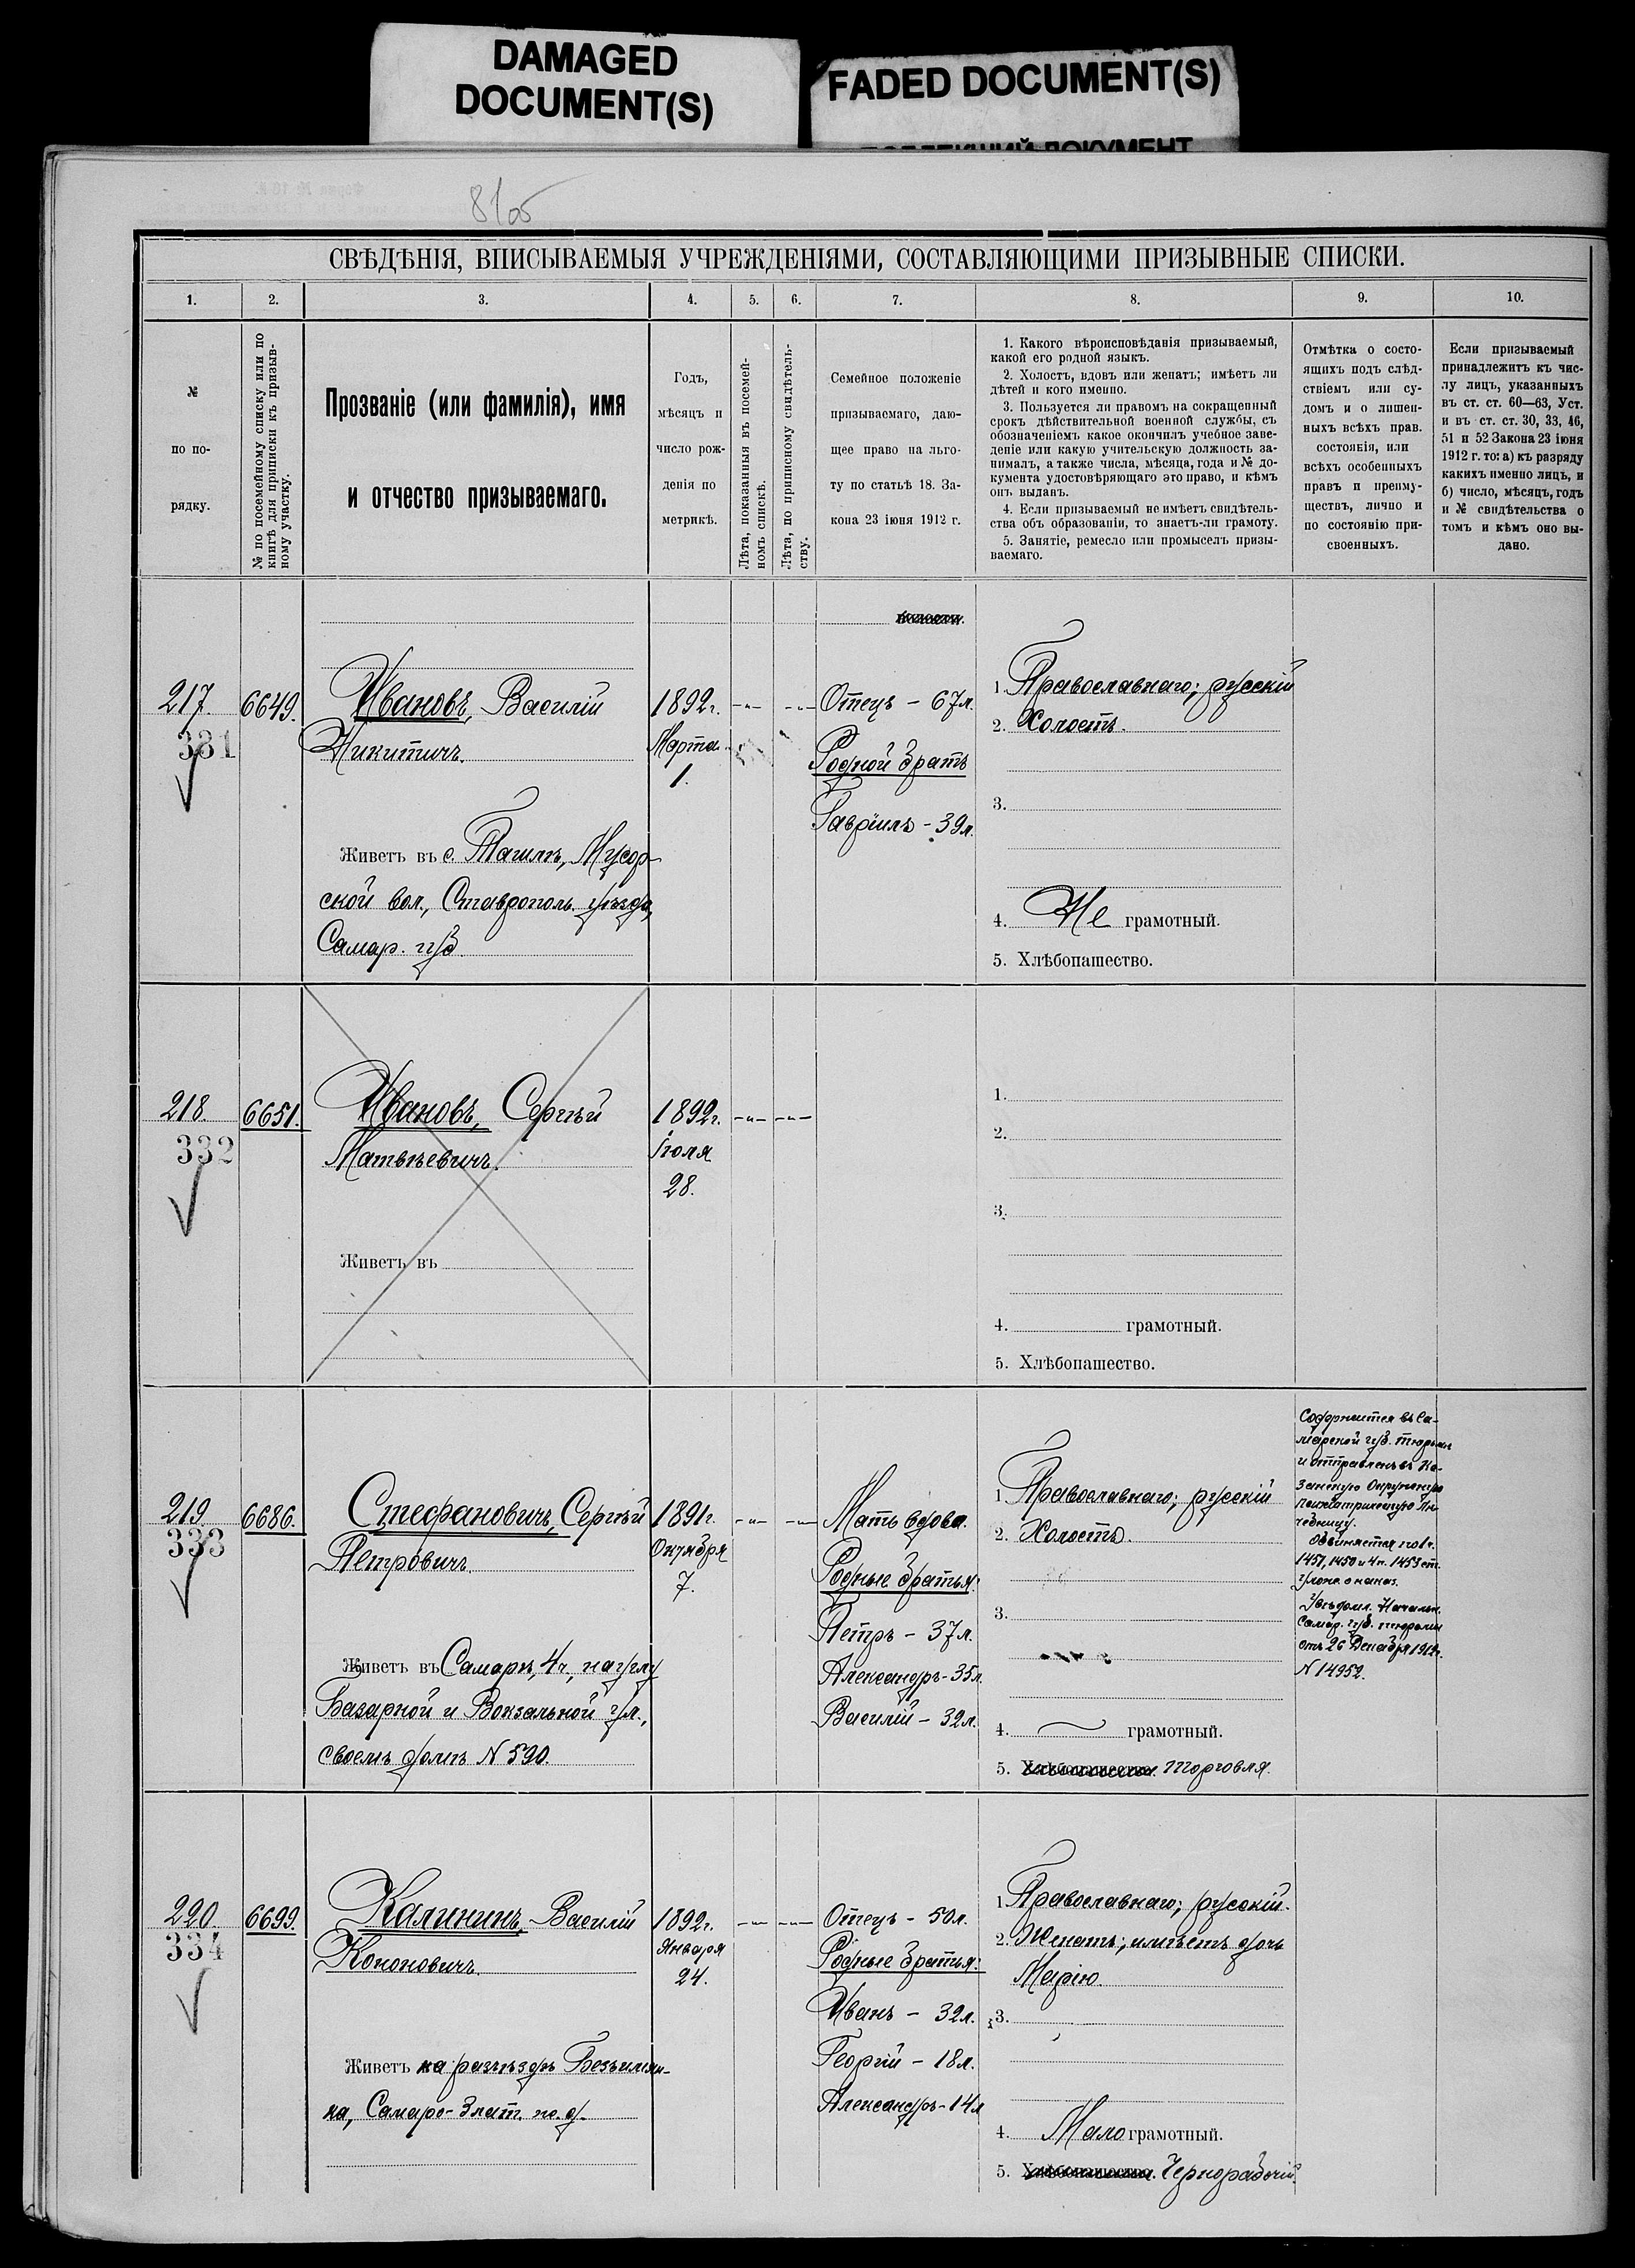 DAMAGED
DOCUMENT(S)
FADED DOCUMENT(S)
СВѢДѢНІЯ, ВПИСЫВАЕМЫЯ УЧРЕЖДЕНІЯМИ, СОСТАВЛЯЮЩИМИ ПРИЗЫВНЫЕ СПИСКИ.
1.
2.
3.
4.
5.
6.
7.
8.
9.
10.
№
по по-
рядку.
№ по посемейному списку или по
книгѣ для приписки къ призыв-
ному участку.
Прозваніе (или фамилія), имя
и отчество призываемаго.
Годъ,
мѣсяцъ и
число рож-
денія по
метрикѣ.
Лѣта, показанныя въ посемей-
номъ спискѣ.
Лѣта, по приписному свидѣтель-
ству.
Семейное положеніе
призываемаго, даю-
щее право на льго-
ту по статьѣ 18. За-
кона 23 іюня 1912 г.
1. Какого вѣроисповѣданія призываемый,
какой его родной языкъ.
2. Холостъ, вдовъ или женатъ; имѣетъ ли
дѣтей и кого именно.
3. Пользуется ли правомъ на сокращенный
срокъ дѣйствительной военной службы, съ
обозначеніемъ какое окончилъ учебное заве-
деніе или какую учительскую должность за-
нималъ, а также числа, мѣсяца, года и № до-
кумента удостовѣряющаго это право, и кѣмъ
онъ выданъ.
4. Если призываемый не имѣетъ свидѣтель-
ства объ образованіи, то знаетъ-ли грамоту.
5. Занятіе, ремесло или промыселъ призы-
ваемаго.
Отмѣтка о состо-
ящихъ подъ слѣд-
ствіемъ или су-
домъ и о лишен-
ныхъ всѣхъ прав.
состоянія, или
всѣхъ особенныхъ
правъ и преиму-
ществъ, лично и
по состоянію при-
своенныхъ.
Если призываемый
принадлежитъ къ чис-
лу лицъ, указанныхъ
въ ст. ст. 60—63, Уст.
и въ ст. ст. 30, 33, 46,
51 и 52 Закона 23 іюня
1912 г. то: а) къ разряду
какихъ именно лицъ, и
б) число, мѣсяцъ, годъ
и № свидѣтельства о
томъ и кѣмъ оно вы-
дано.
217.
331
6649.
Ивановъ, Василій
Никитичъ.
Живетъ въ с. Ташлѣ, Мусор-
ской вол., Ставрополь. уѣзда,
Самар. губ.
1892г.
Марта
1.
Отецъ - 67л.
Родной братъ
Гавріилъ - 39л.
1. Православнаго; русскій
2. Холостъ.
3.
4. Не грамотный.
5. Хлѣбопашество.
218.
332
6651.
Ивановъ, Сергѣй
Матвѣевичъ.
Живетъ въ
1892г.
Іюля
28.
1.
2.
3.
4. грамотный.
5. Хлѣбопашество.
219
333
6686.
Стефановичъ, Сергѣй
Петровичъ.
Живетъ въ Самарѣ, 4ч, на углу
Базарной и Вокзальной ул.,
своемъ домѣ N 590.
1891г.
Октября
7.
Мать вдова.
Родные братья:
Петръ - 37л.
Александръ - 35л.
Василій - 32л.
1. Православнаго; русскій
2. Холостъ.
3.
4. грамотный.
5. Хлѣбопашество. Торговля.
Содержится въ Са-
марской губ. тюрьмѣ
и отправленъ въ Ка-
занскую Окружную
психіатрическую Лѣ-
чебницу.
Обвиняется по 1ч.
1457, 1459 и 4п. 1453 ст.
Улож. о наказ.
Увѣдомл. Начальн.
Самар. губ. тюрьмы
отъ 26 Декабря 1912г.
N 14952.
220.
334
6699.
Калининъ, Василій
Кононовичъ.
Живетъ на разъѣздѣ Безъимян-
ка, Самаро-Злат. ж. д.
1892г.
Января
24.
Отецъ - 50л.
Родные братья:
Иванъ - 32л.
Георгій - 18л.
Александръ - 14л
1. Православнаго; русскій.
2. Женатъ; имѣетъ дочь
Марію.
3.
4. Мало грамотный.
5. Хлѣбопашество. Чернорабочій.